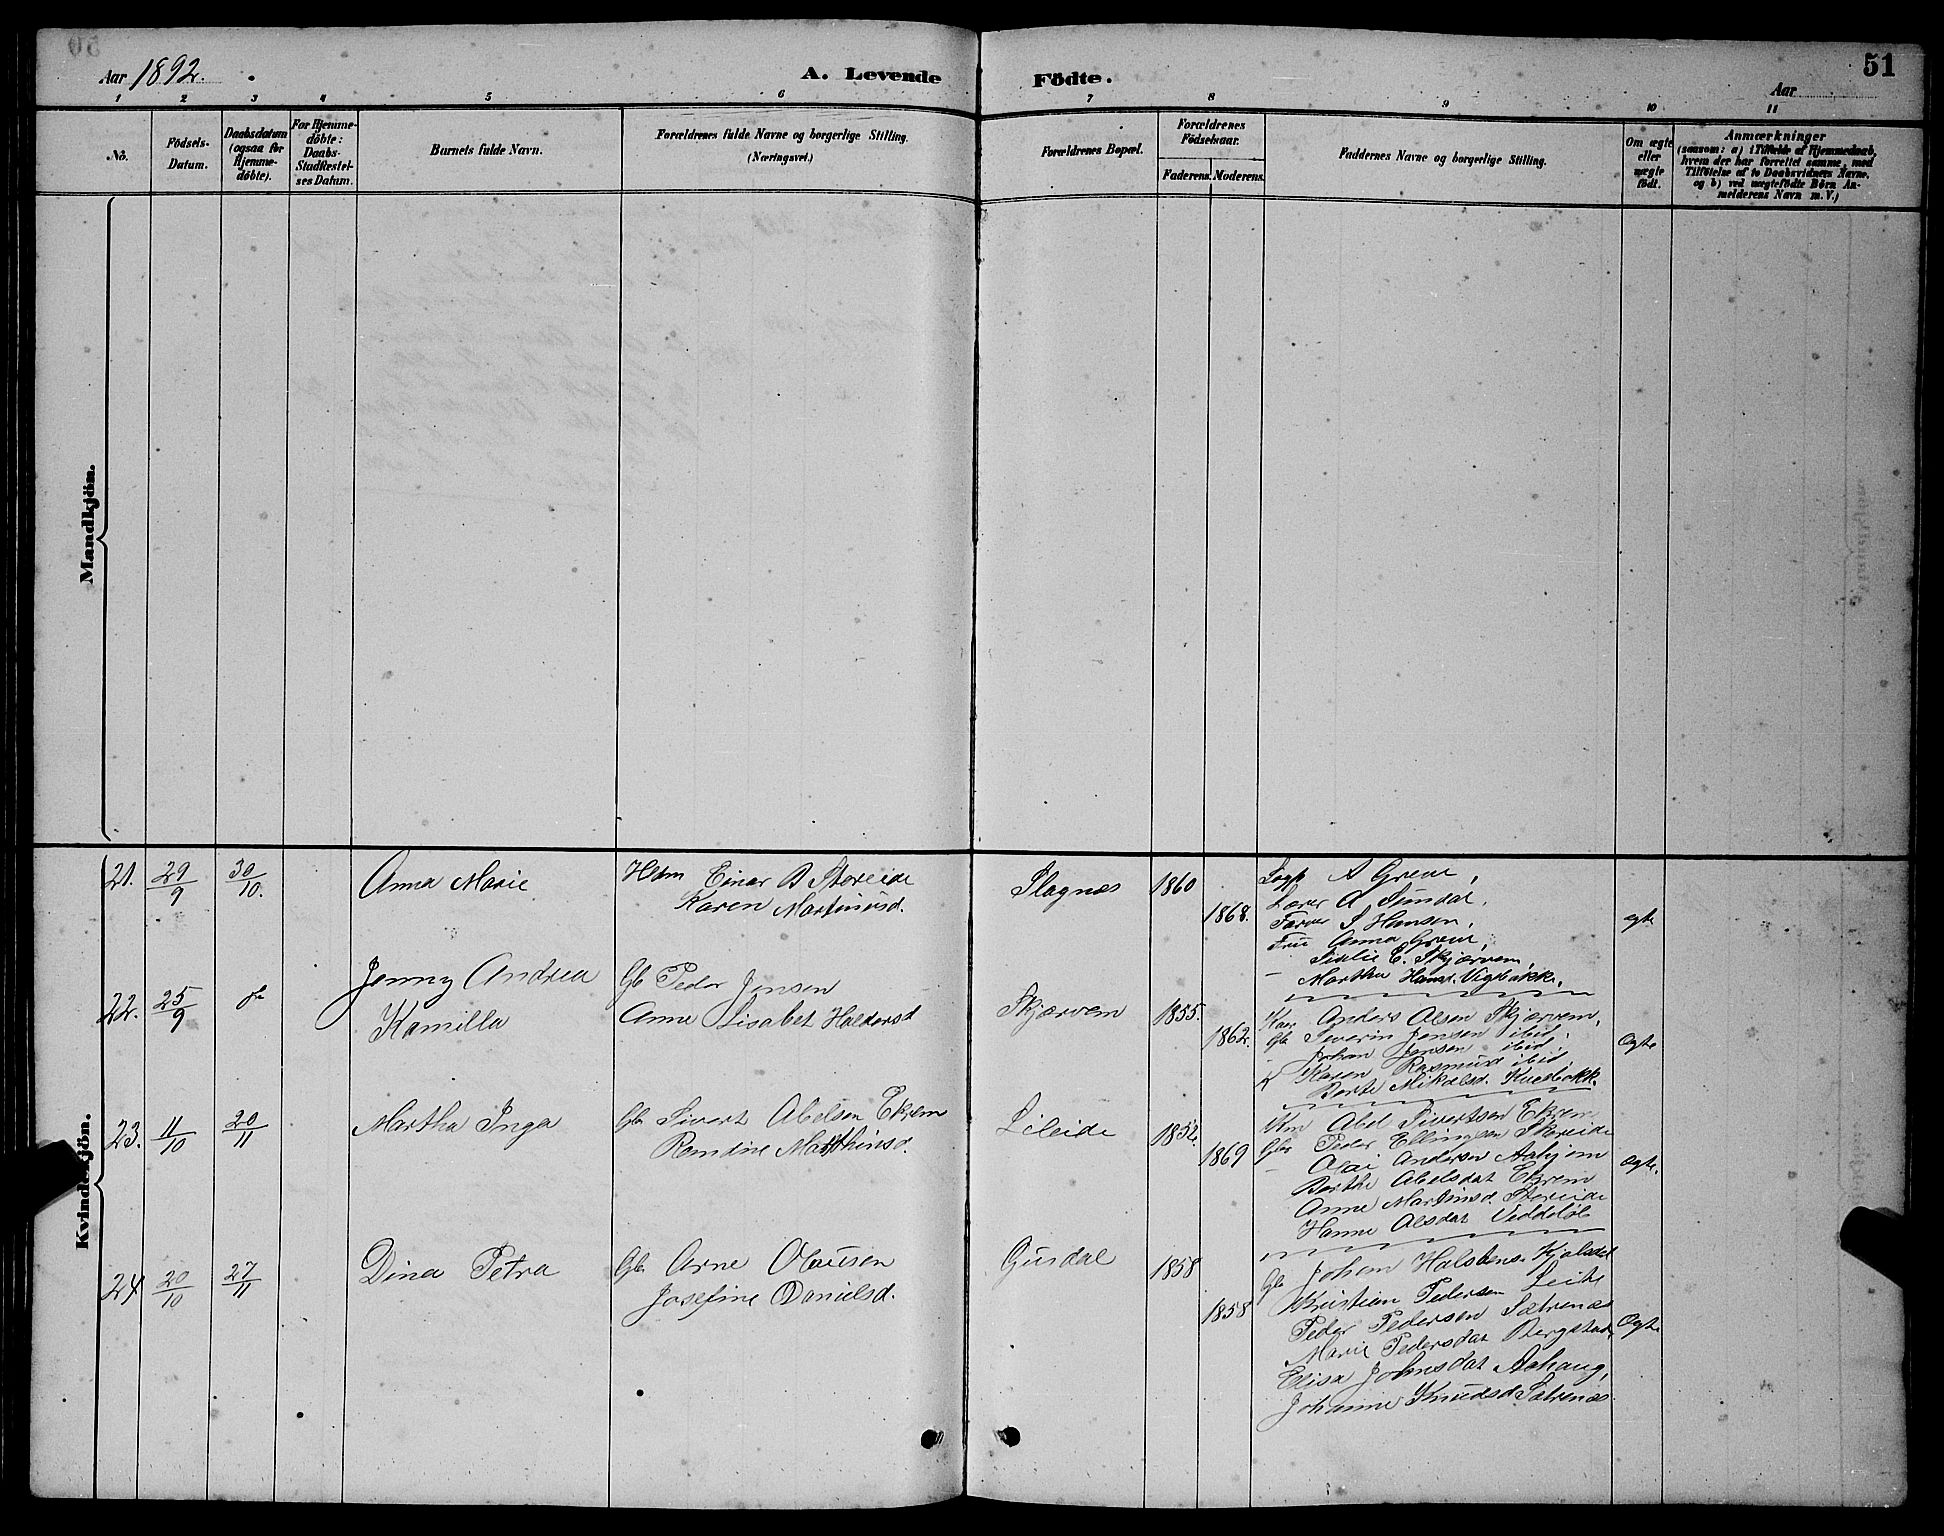 Aar 1892.
A. Levende
Födte.
51
Aar
1 2 3 4 5 6 7 8 9 10 11
No.
Födsels-
Datum.
Daabsdatum
(ogsaa for
Hjemme-
döbte).
For Hjemme-
döbte:
Daabs-
Stadfæstel-
ses Datum.
Barnets fulde Navn.
Forældrenes fulde Navne og borgerlige Stilling.
(Næringsvei.)
Forældrenes Bopæl.
Forældrenes
Födselsaar.
Faderens. Moderens.
Faddernes Navne og borgerlige Stilling.
Om ægte
eller
uægte
födt.
Anmærkninger
(saasom: a) i Tilfælde af Hjemmedaab,
hvem der har forrettet samme, med
Tilföielse af to Daabsvidners Navne.
og b) ved uægtefödte Börn An-
melderens Navn m.V.)
Mandkjön.
Kvindekjön.
21. 29/9 30/10. Anna Marie
Einar B Storeide
Karen Martinusd.
Slagnæs 1860 1868.
A Greve,
Lærer A Sundal,
Farver S Hansen,
Frue Anna Greve,
E. Skjærvem,
Martha Hansd. Vigebakke.
ægte
22. 25/9
Jenny Andrea
Kamilla
Gb Peder Jensen
Anne Lisabet Haldorsd
Skjærvem 1855. 1862.
Anders Olsen Skjærvem,
Gb Severin Jensen ibid,
Johan Jensen ibid,
Karen Rasmusd ibid,
Berte Mikalsd.
Ægte
23. 11/10 20/11 Martha Inga
Gb Sivert Abelsen Ekrem
Ramdine Matthiusd.
Lileide 1852. 1869
Abel Sivertsen Ekrem
Gbr Peder Ellingsen Storeide
Olai Andersen Aahjem
Berthe Abelsdat Ekrem
Anne Martinusd. Storeide
Hanne Olsdat
Ægte.
24 20/10 27/11 Dina Petra
Gb Arne Olausen
Josefine Danielsd.
Gusdal 1858 1858
Gb Johan Halstens. Kjølsdal
Kristian Pedersen Leite
Peder Pedersen Sætrenæs
Marie Pedersdat
Elisa Johnsdat Aahaug,
Johanne Knudsd Sætrenæs.
Ægte